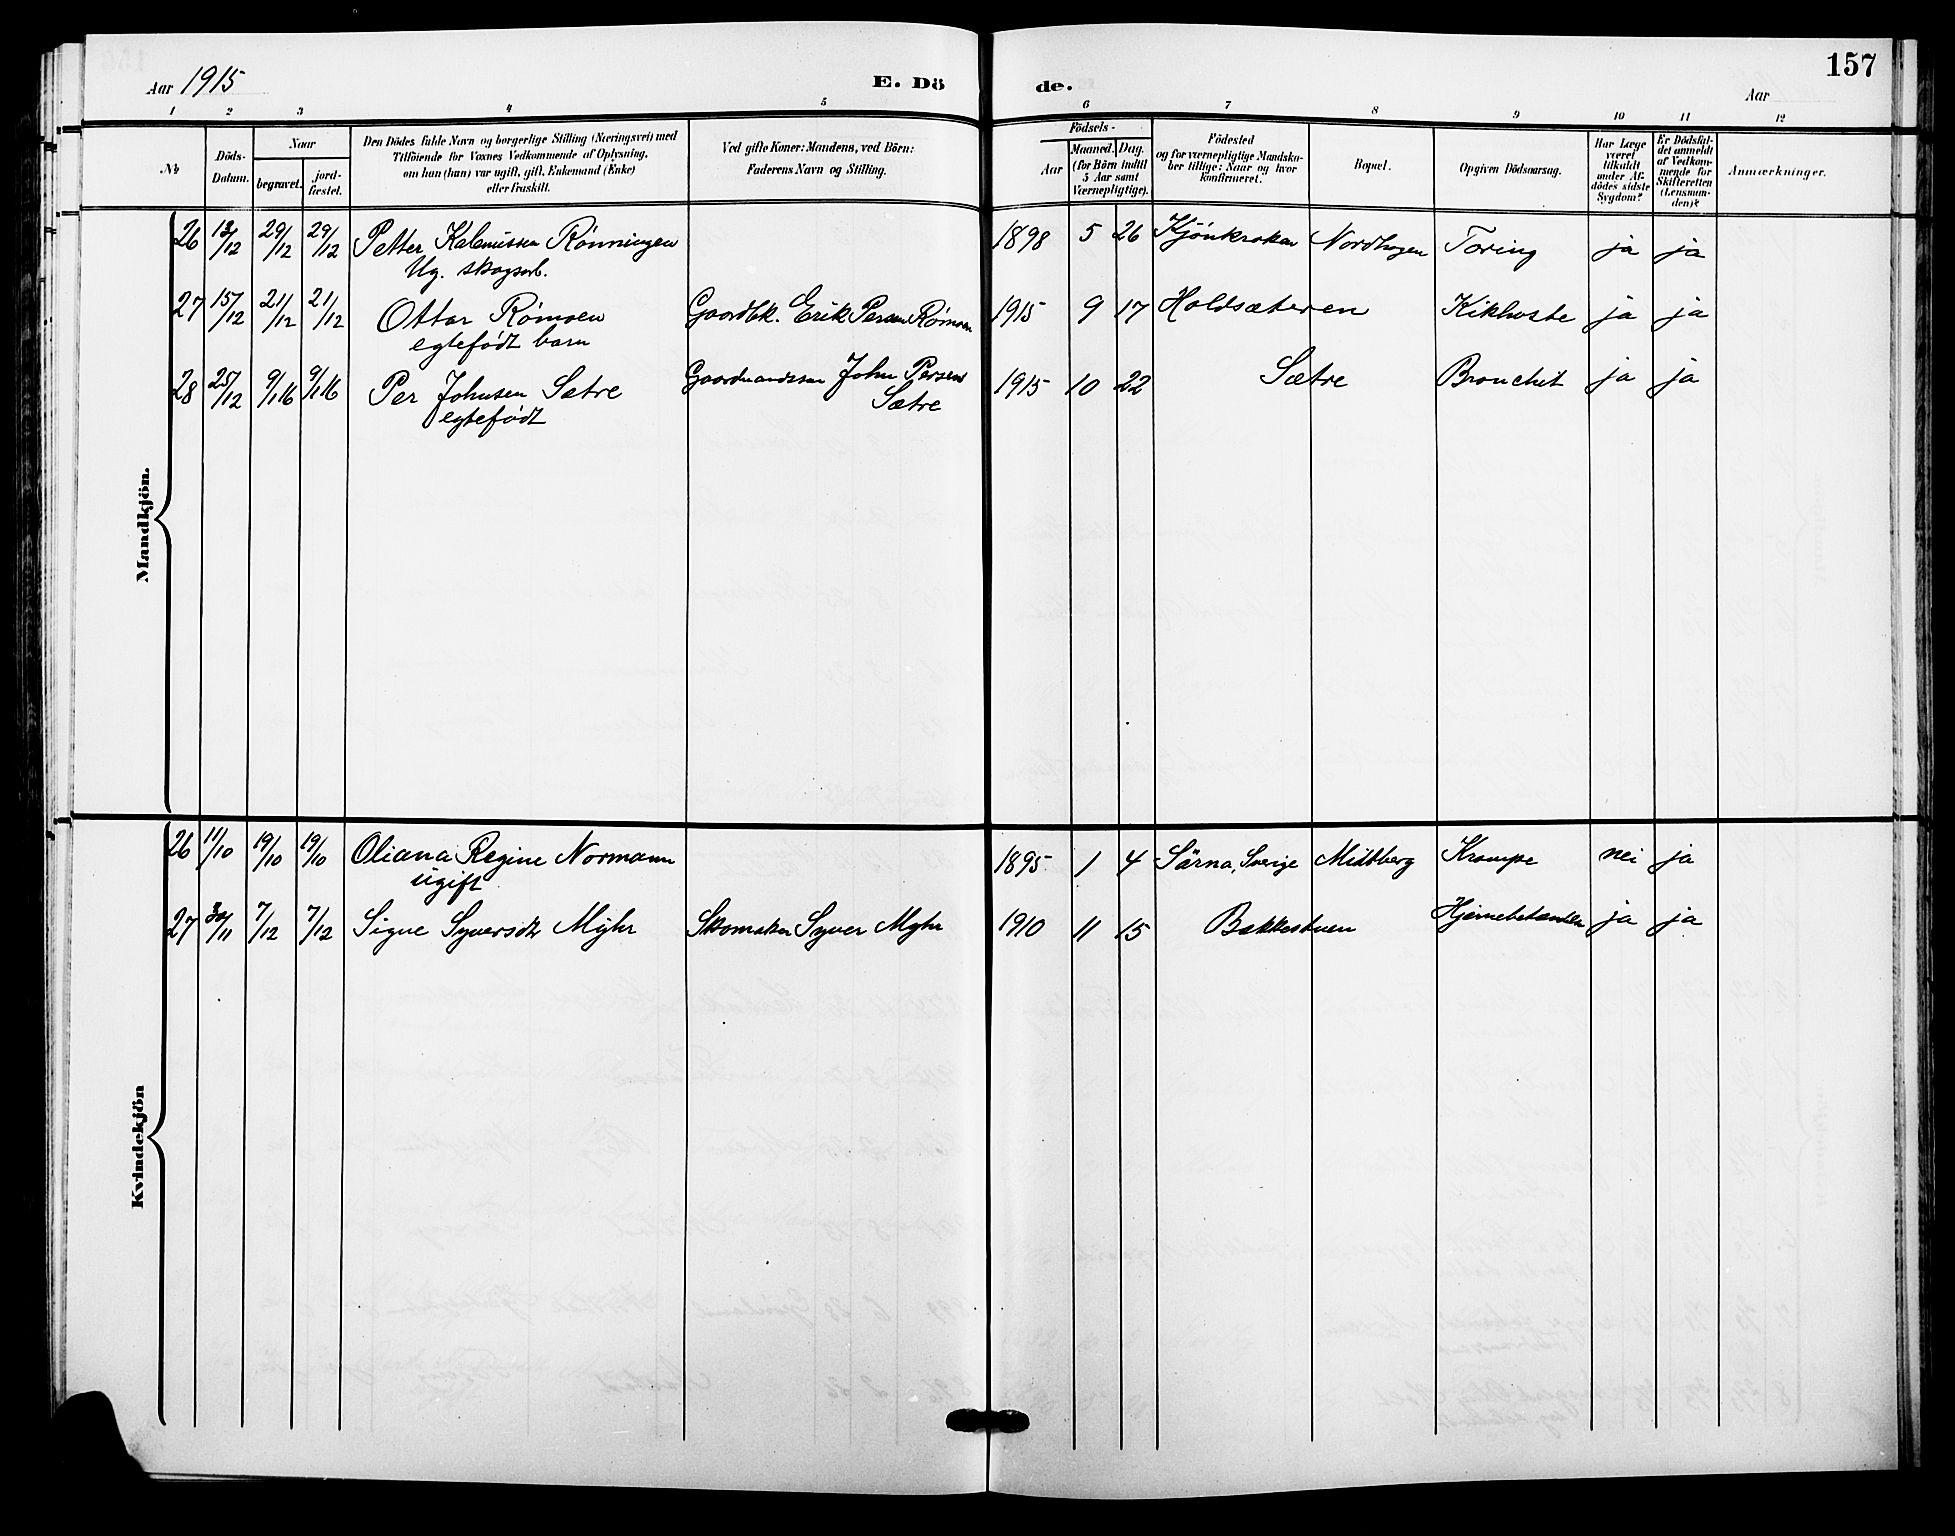 157
Aar 1915 E. Dö de. Aar
1 2 3 4 5 6 7 8 9 10 11 12
No
Döds-Datum.
Naar
begravet.
jord-fæstet.
Den Dödes fulde Navn og borgerlige Stilling (Næringsvei) med
Tilföiende for Voxnes Vedkommende af Oplysning,
om han (hun) var ugift, gift, Enkemand (Enke)
eller fraskilt.
Ved gifte Koner: Mandens, ved Börn:
Faderens Navn og Stilling.
Födsels-
Aar
Maaned. Dag.
(for Börn indtil
5 Aar samt
Værnepligtige).
Födested
og for værnepligtige Mandska-
ber tillige: Naar og hvor
konfirmeret.
Bopæl.
Opgiven Dödsaarsag.
Har Læge
været
tilkaldt
under Af-
dödes sidste
Sygdom?
Er Dödsfal-
det anmeldt
af Vedkom-
mende for
Skifteretten
(Lensman-
den)?
Anmærkninger.
Mandkjön.
26 13/12 29/12 29/12 Petter Rønningen 1898 5 26 Nordhagen Tæring ja ja
Ug. skogsarb.
27 15/12 21/12 21/12 Ottar Rømoen Gaardbk. Erik Persen Rømoen 1915 9 17 Holdsæteren Kikhoste ja ja
egtefødt barn
28 25/12 9/1 16 9/1 16 Per Johnsen Sætre Gaardmandssøn John Persen 1915 10 22 Sætre Bronchit ja ja
egtefødt Sætre
Kvindekjön
26 11/10 19/10 19/10 Oliana Regine Normann 1895 1 4 Särna, Sverige Midtberg Krampe nei ja
ugift
27 30/11 7/12 7/12 Signe Syversdtr Myhr Skomaker Syver Myhr 1910 11 15 Bakkestuen ja ja